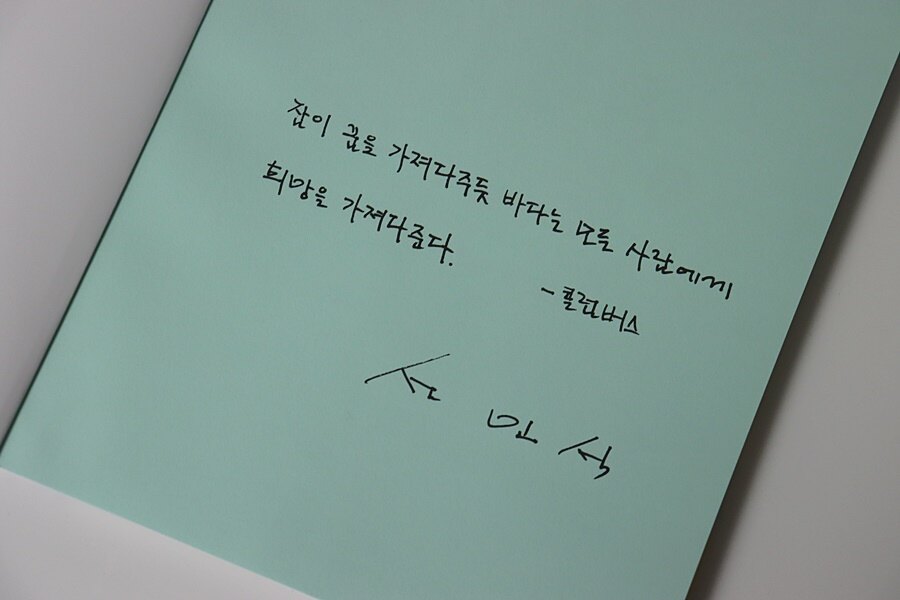 잠이 꿈을 가져다주듯 바다는 모든 사람에게
희망을 가져다준다.
- 콜럼버스
선 민 식